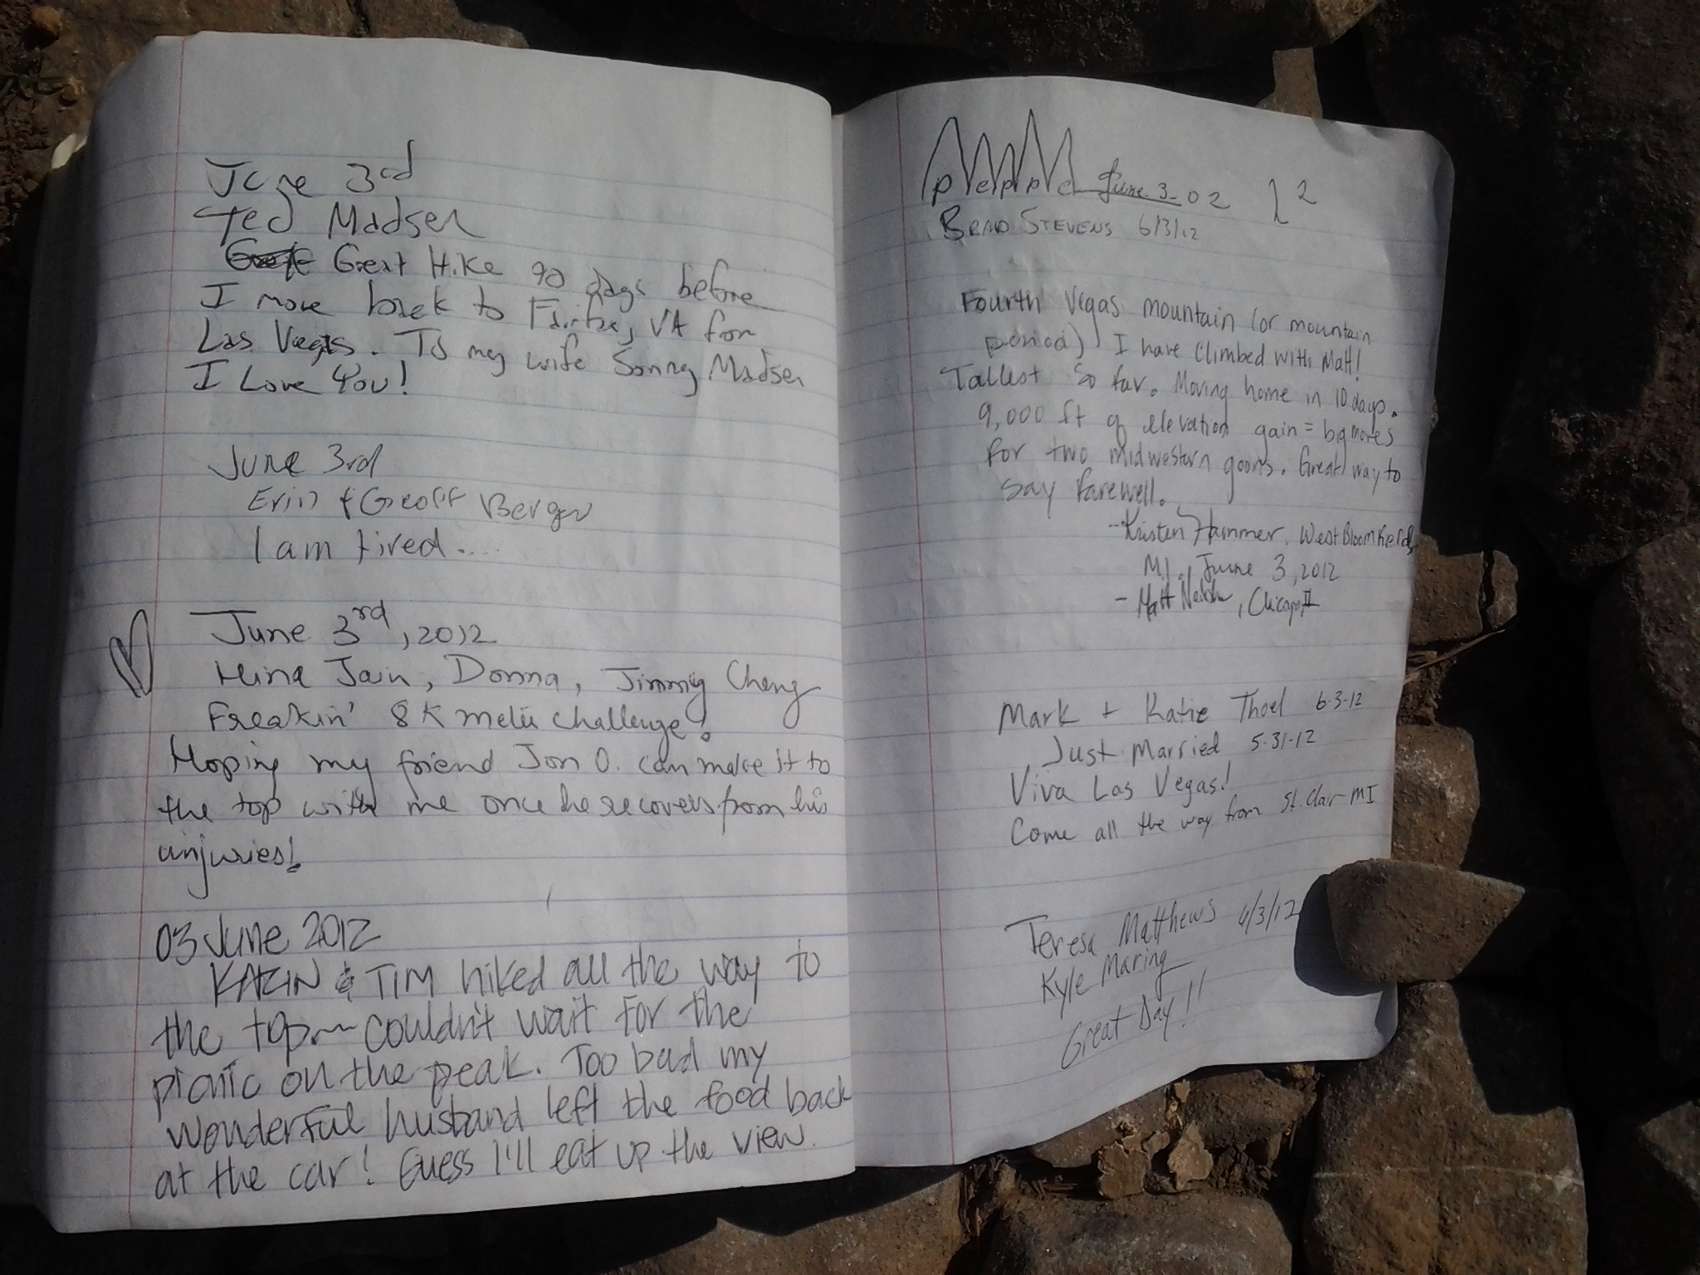 June 3rd
Ted Madsen
Great Hike 90 days before
I move back to Fairfax, VA for
Las Vegas. To my wife Sonny Madsen
I Love You!
June 3rd
Erin & Geoff Berger
I am tired....
June 3rd, 2012
Hina Jain, Donna, Jimmy Cheng
Freakin' 8K meter challenge!
Hoping my friend Jon O. can make it to
the top with me once he recovers from his
injuries!
03 June 2012
KARIN & TIM hiked all the way to
the top~ couldn't wait for the
picnic on the peak. Too bad my
wonderful husband left the food back
at the car! Guess I'll eat up the view.
peppe June 3-02 12
BRAD STEVENS 6/3/12
Fourth Vegas mountain (or mountain
period) I have climbed with Matt!
Tallest so far. Moving home in 10 days.
9,000 ft of elevation gain = big moves
for two midwestern goons. Great way to
say farewell.
-Kristen Hammer, West Bloomfield,
MI. June 3, 2012
- Matt, Chicago, IL
Mark + Katie Thoel 6-3-12
Just Married 5-31-12
Viva Las Vegas!
Come all the way from St. Clair MI
Teresa Matthews 6/3/12
Kyle Maring
Great Day!!